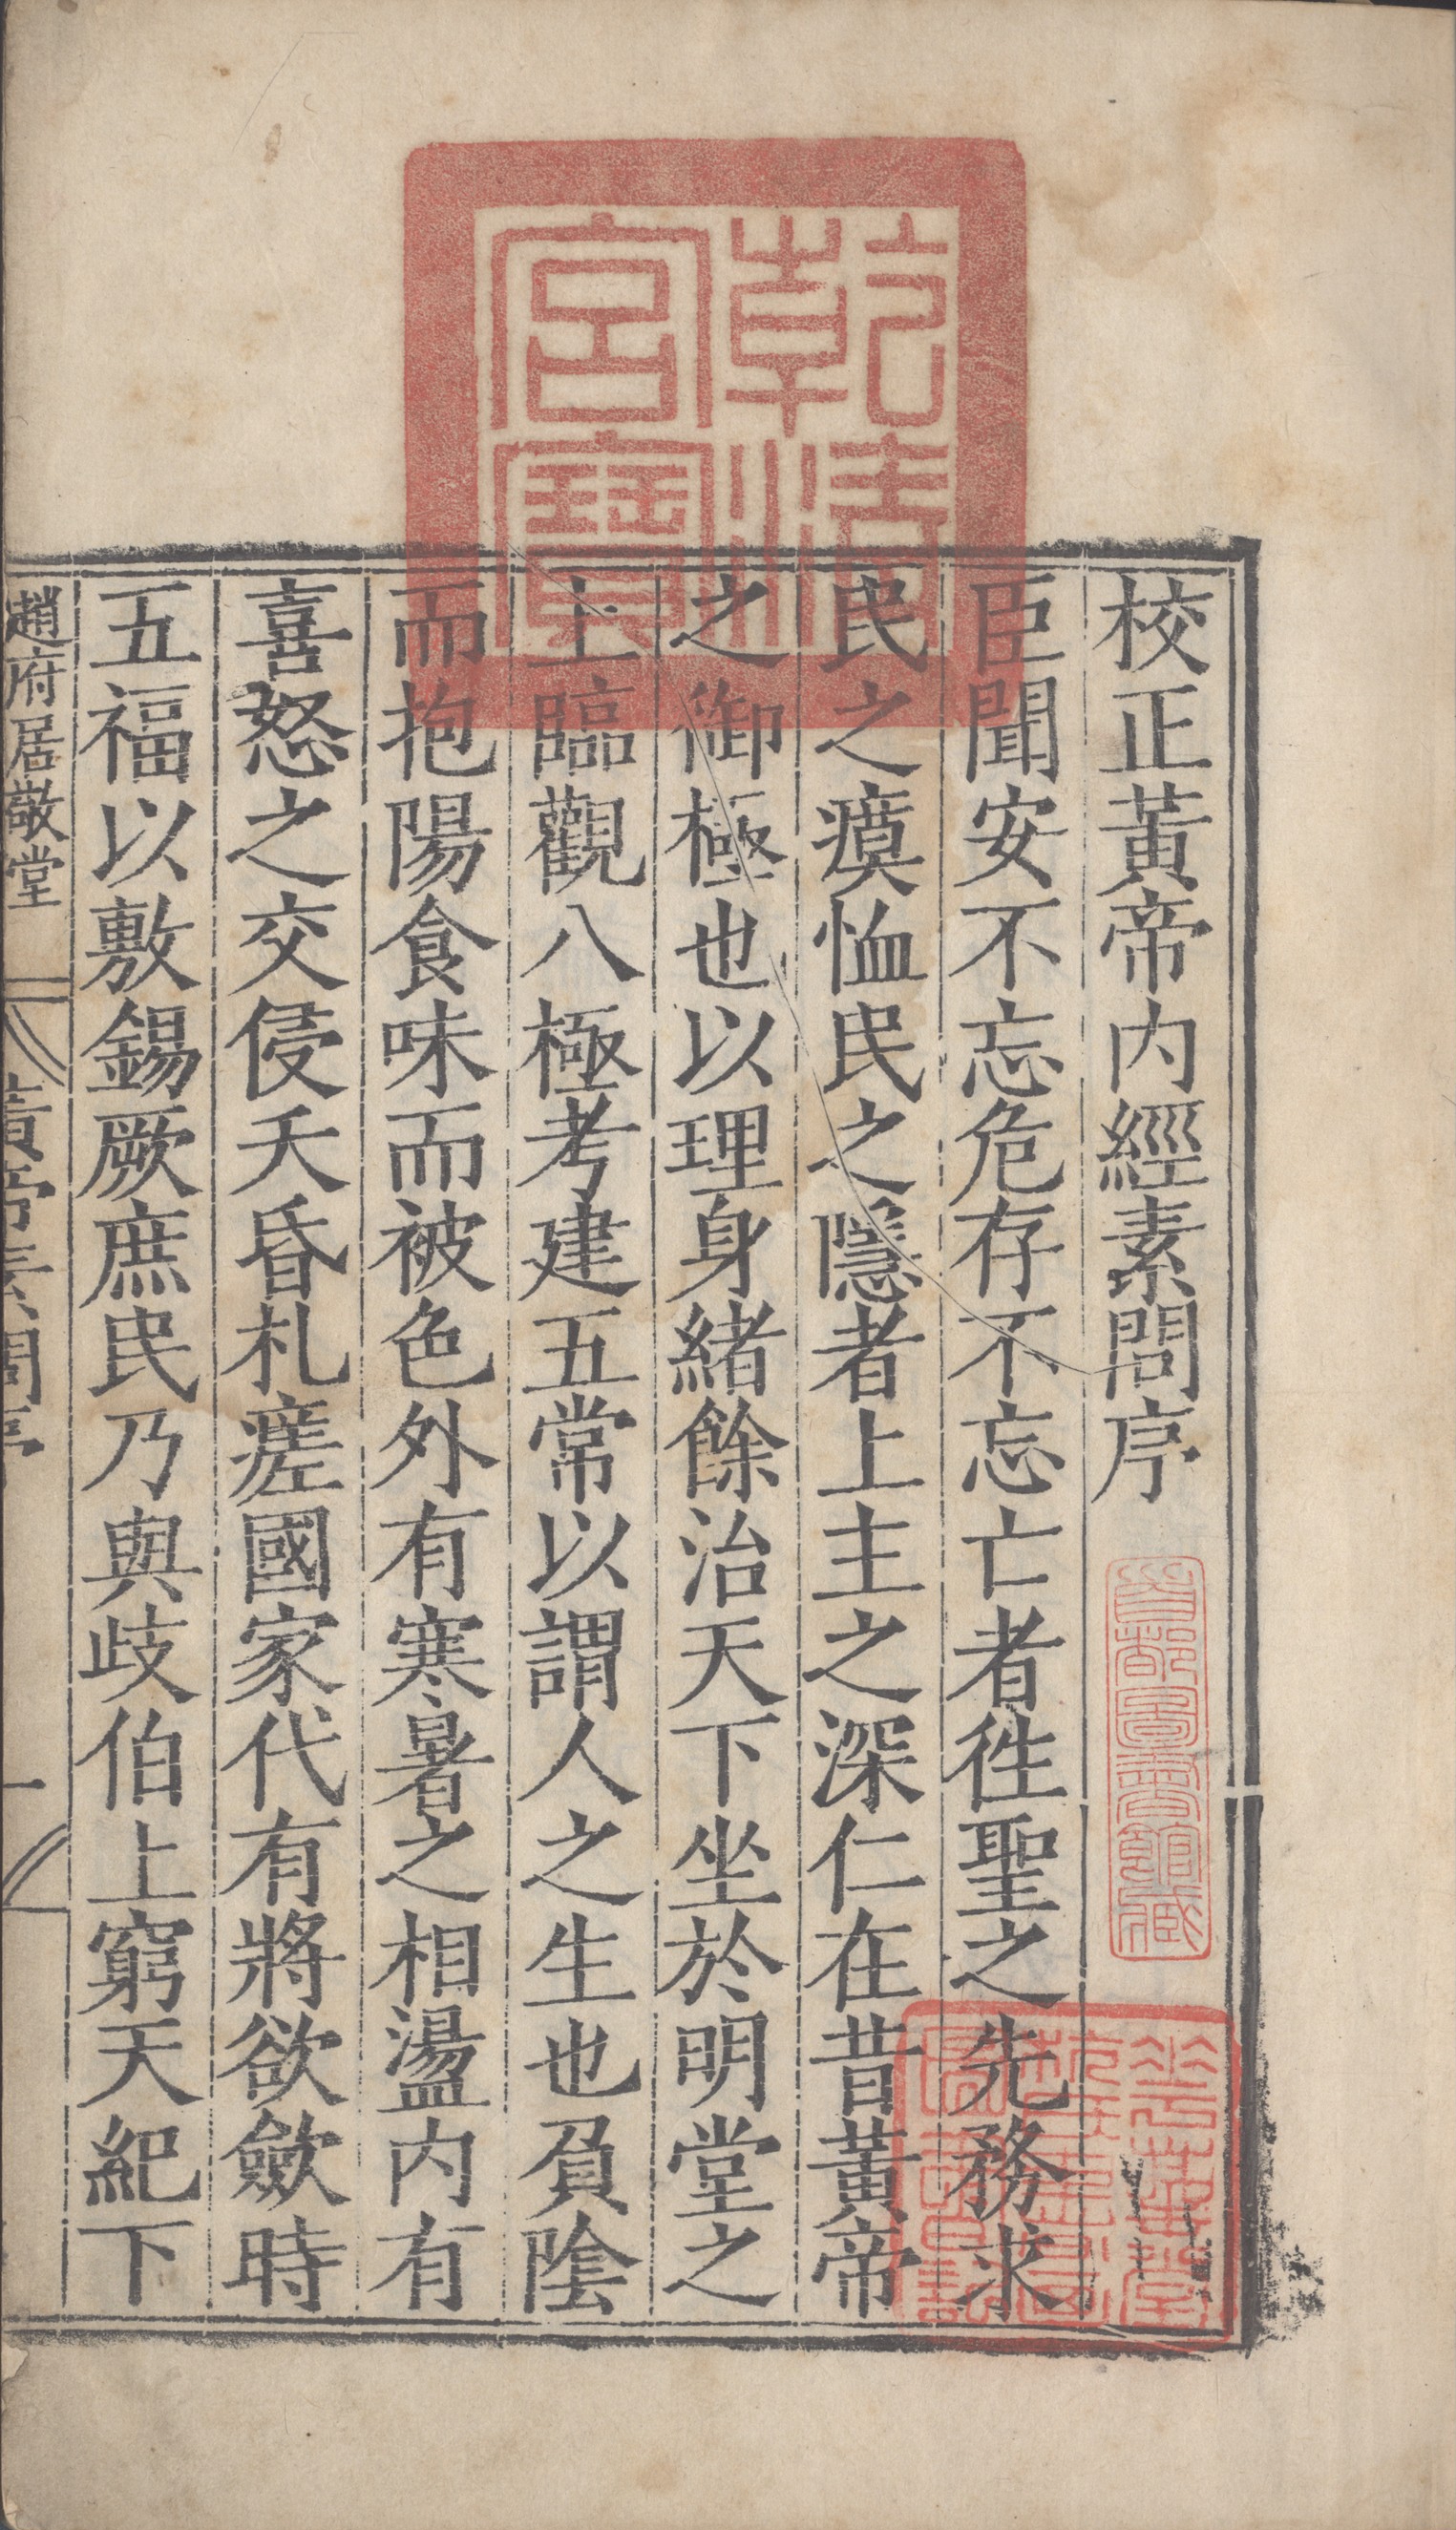 校正黃帝内經素問序
臣聞安不忘危存不忘亡者徃聖之先務求
民之瘼恤民之隱者上主之深仁在昔黃帝
之御極也以理身緒餘治天下坐於明堂之
上臨觀八極考建五常以謂人之生也負陰
而抱陽食味而被色外有寒暑之相盪内有
喜怒之交侵夭昏札瘥國家代有將欲斂時
五福以敷錫厥庶民乃與歧伯上窮天紀下
趙府居敬堂
黃帝素問序
一
乾清
宮寶
首都圖書館藏